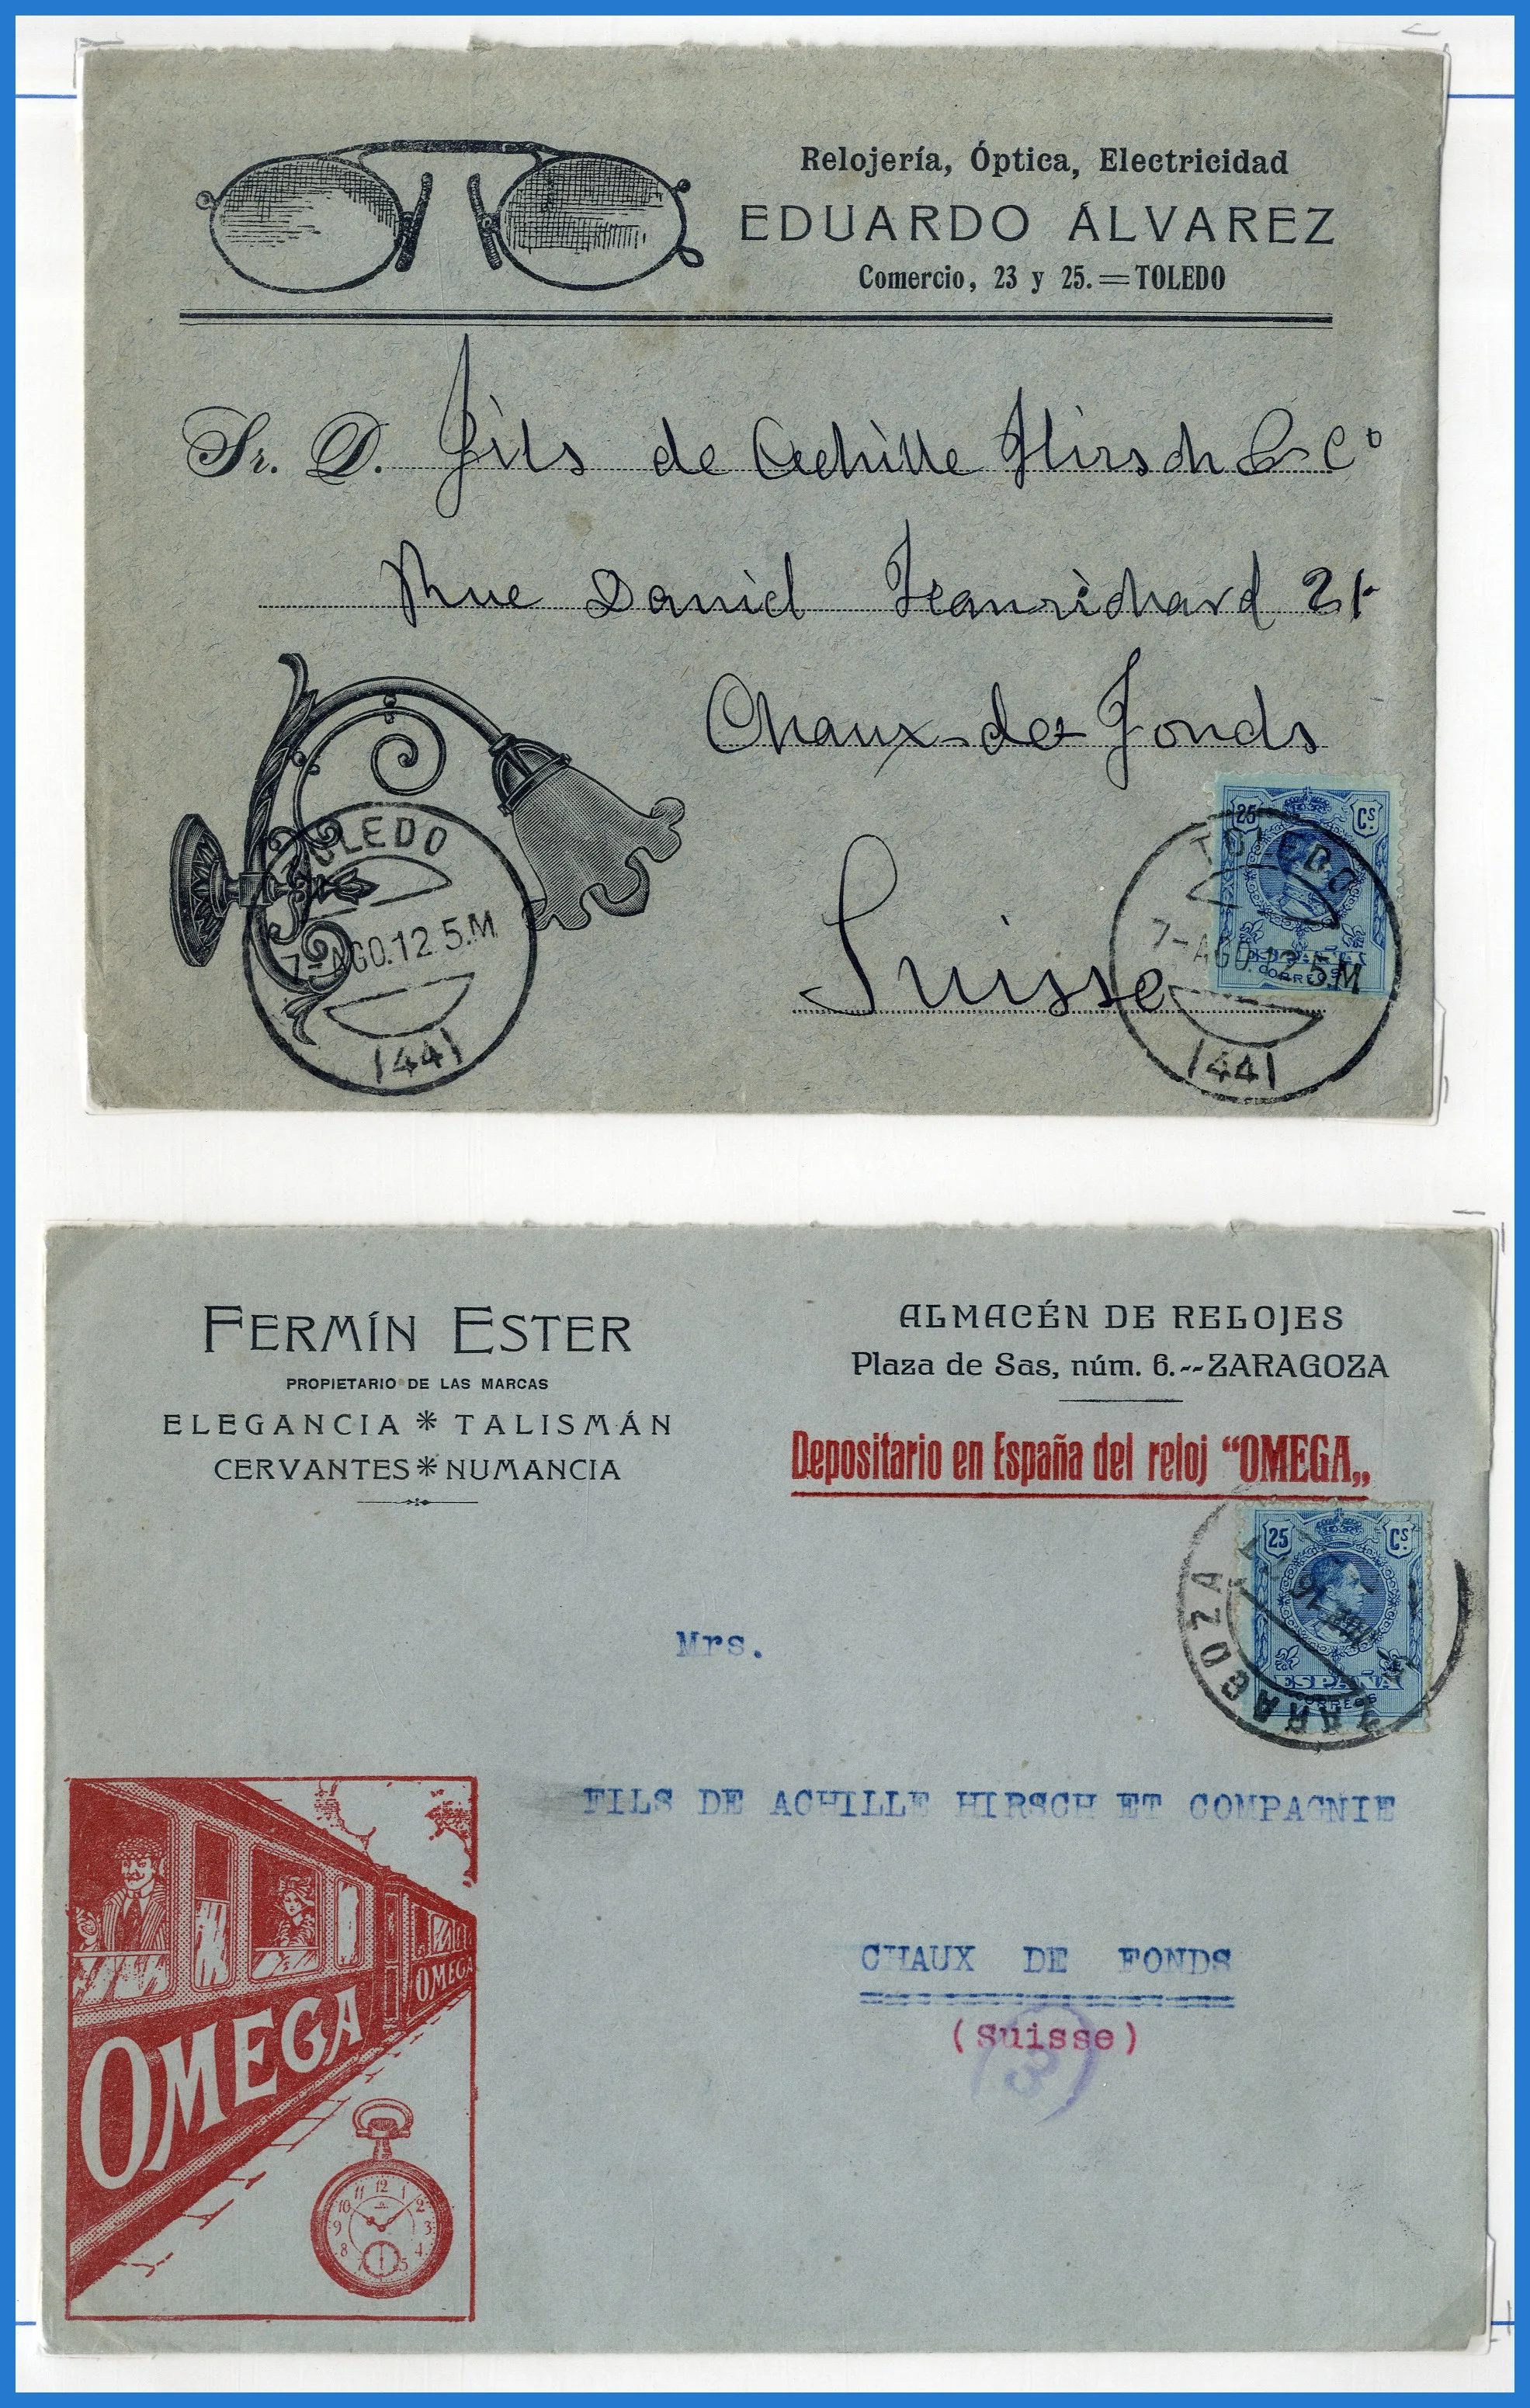 Relojería, Óptica, Electricidad
EDUARDO ÁLVAREZ
Comercio, 23 y 25.=TOLEDO
Sr. D. Fils de Achille Hirsch & Cº
Rue Daniel Jeanrichard 21
Chaux-de-Fonds
Suisse
25 Cs
ESPAÑA
CORREOS
TOLEDO
7-AGO.12.5M
(44)
TOLEDO
7-AGO.12.5M
(44)
FERMÍN ESTER
PROPIETARIO DE LAS MARCAS
ELEGANCIA * TALISMÁN
CERVANTES * NUMANCIA
ALMACÉN DE RELOJES
Plaza de Sas, núm. 6.--ZARAGOZA
Depositario en España del reloj “OMEGA„
25 Cs
ESPAÑA
CORREOS
ZARAGOZA
Mrs.
FILS DE ACHILLE HIRSCH ET COMPAGNIE
CHAUX DE FONDS
(Suisse)
3
OMEGA
OMEGA
11 12 1
10 2
9 3
8 4
7 5